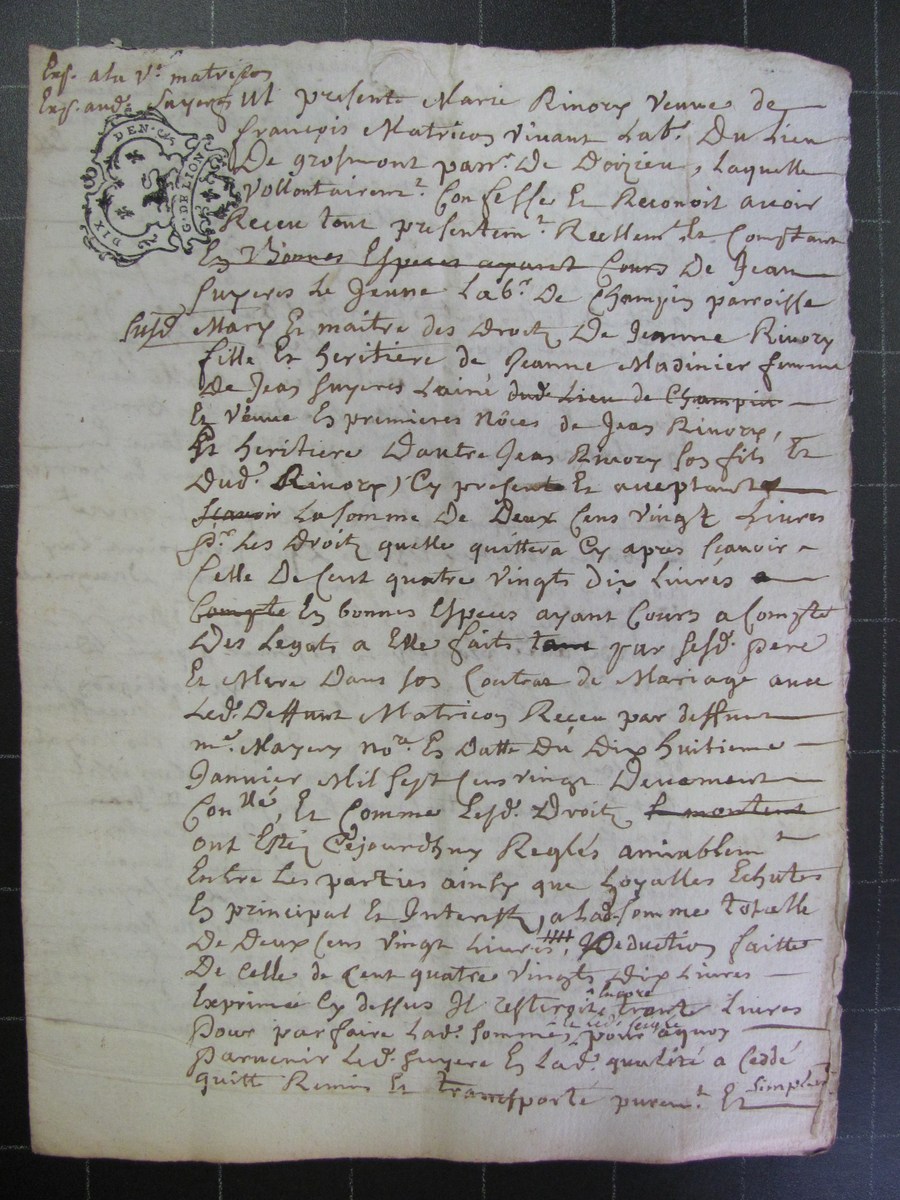 Exp. a la V.e matricon
Exp. aud. Suyeres
DEN.
G. DE LION
DIX
fut presente Marie Rivory veuve de
francois Matricon vivant Lab.r Du Lieu
De grosmont parr.e De Doizieu, Laquelle
vollontairem.t Confesse Et Reconoit avoir
Receu tout presentem.t Reellem.t Et Comptant
En Bonnes Especes ayant Cours De Jean
Suyeres Le Jeune Lab.r De Champin parroisse
susd. Mary Et maitre des Droitz De Jeanne Rivory
fille Et heritiere de Jeanne Madinier femme
De Jean Suyeres Lainé dud. Lieu de Champin
Et Veuve En premieres Nôces de Jean Rivory,
Et heritiere Dautre Jean Rivory son fils Et
Dud. Rivory) Cy present Et acceptant
scavoir La somme De Deux Cens vingt Livres
p.r Les Droitz quelle quittera Cy apres scavoir
Celle De Cent quatre vingts dix Livres a
Compte En bonnes Especes ayant Cours a Compte
Des Legats a Elle faits tant par sesd. pere
Et Mere Dans son Contrat de Mariage avec
Led. Deffunt Matricon Receu par deffunt
m.e Mayery no.re En Datte Du Dix huitieme
Janvier Mil sept Cens vingt Deuement
Con.llé, Et Comme Lesd. Droitz se montent
ont Estez Cejourdhuy Reglés amiablem.t
Entre Les parties ainsy que Loyalles Echutes
En principal Et Interestz, a Lad. somme totalle
De Deux Cens vingt Livres, Deduction faitte
De Celle de Cent quatre vingts Dix Livres
Exprimée Cy dessus Il resteroit trante Livres
pour parfaire Lad. somme, pour aquoy
parvenir Led. Suyere En Lad. qualité a Ceddé
quitté Remis Et transporté purem.t Et simplem.t